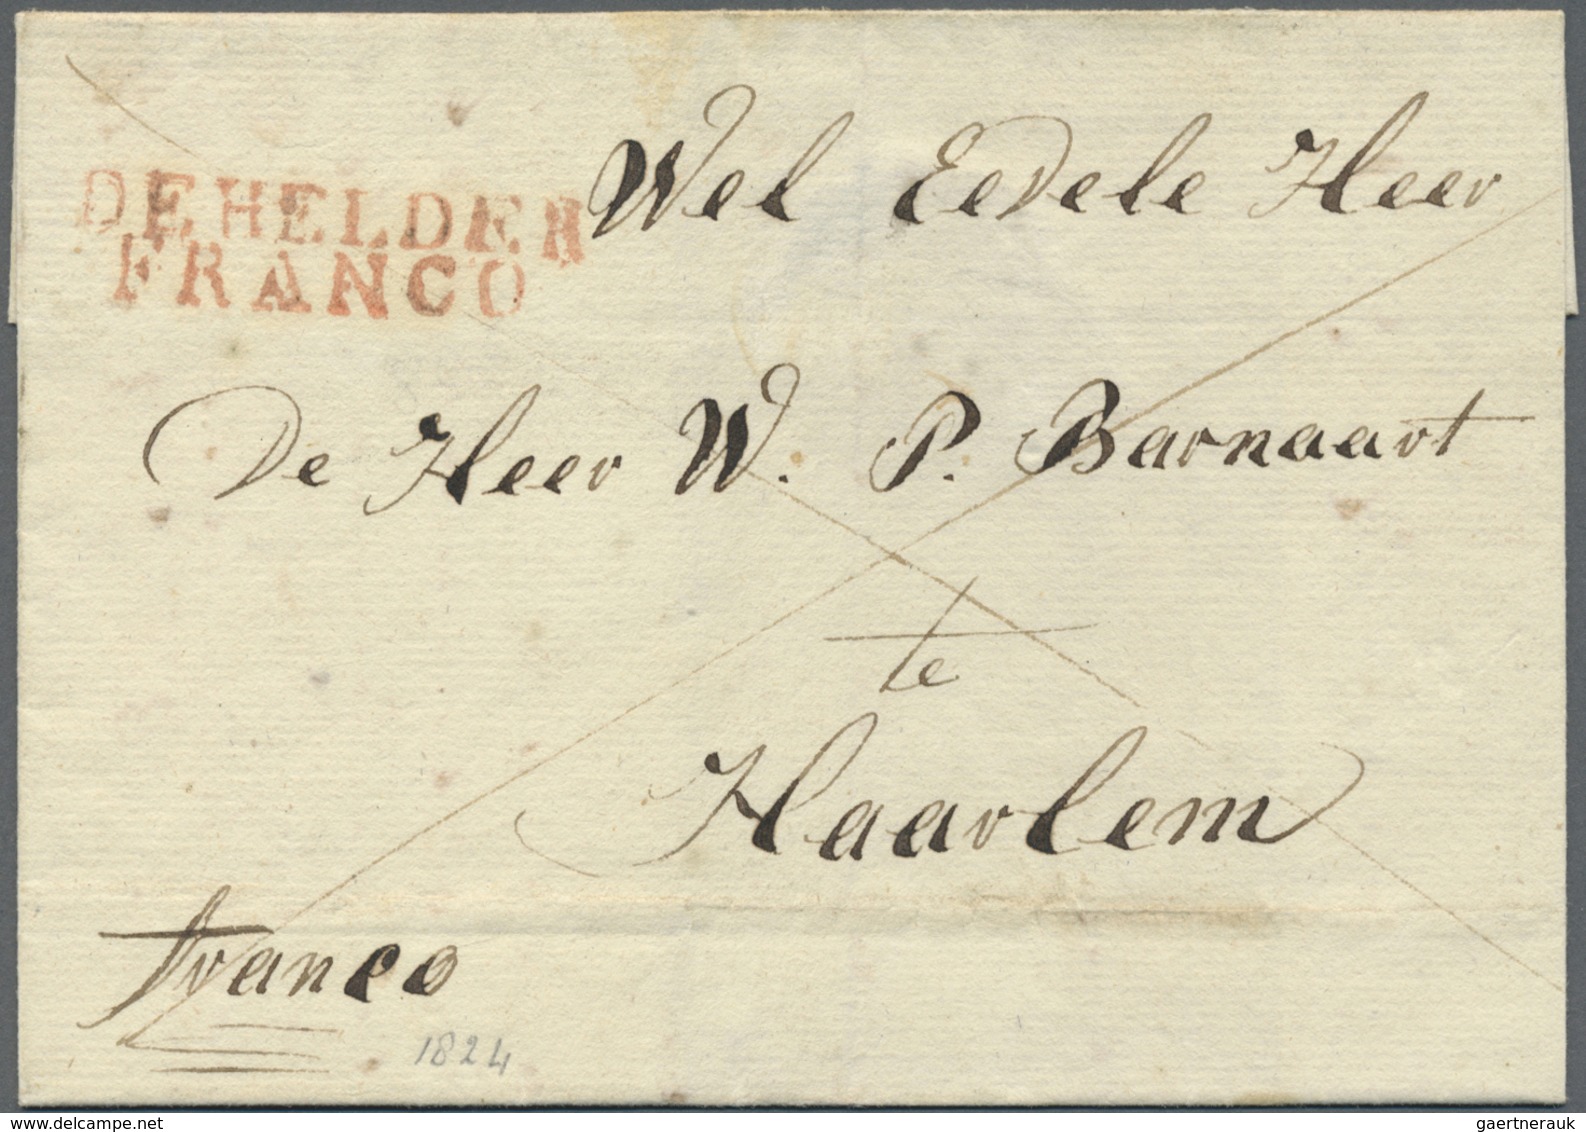 Wel Eedele Heer
DE HELDER
FRANCO
De Heer W. P. Barnaart
te
Haarlem
franco
1824
www.delcampe.net
gaertnerauk